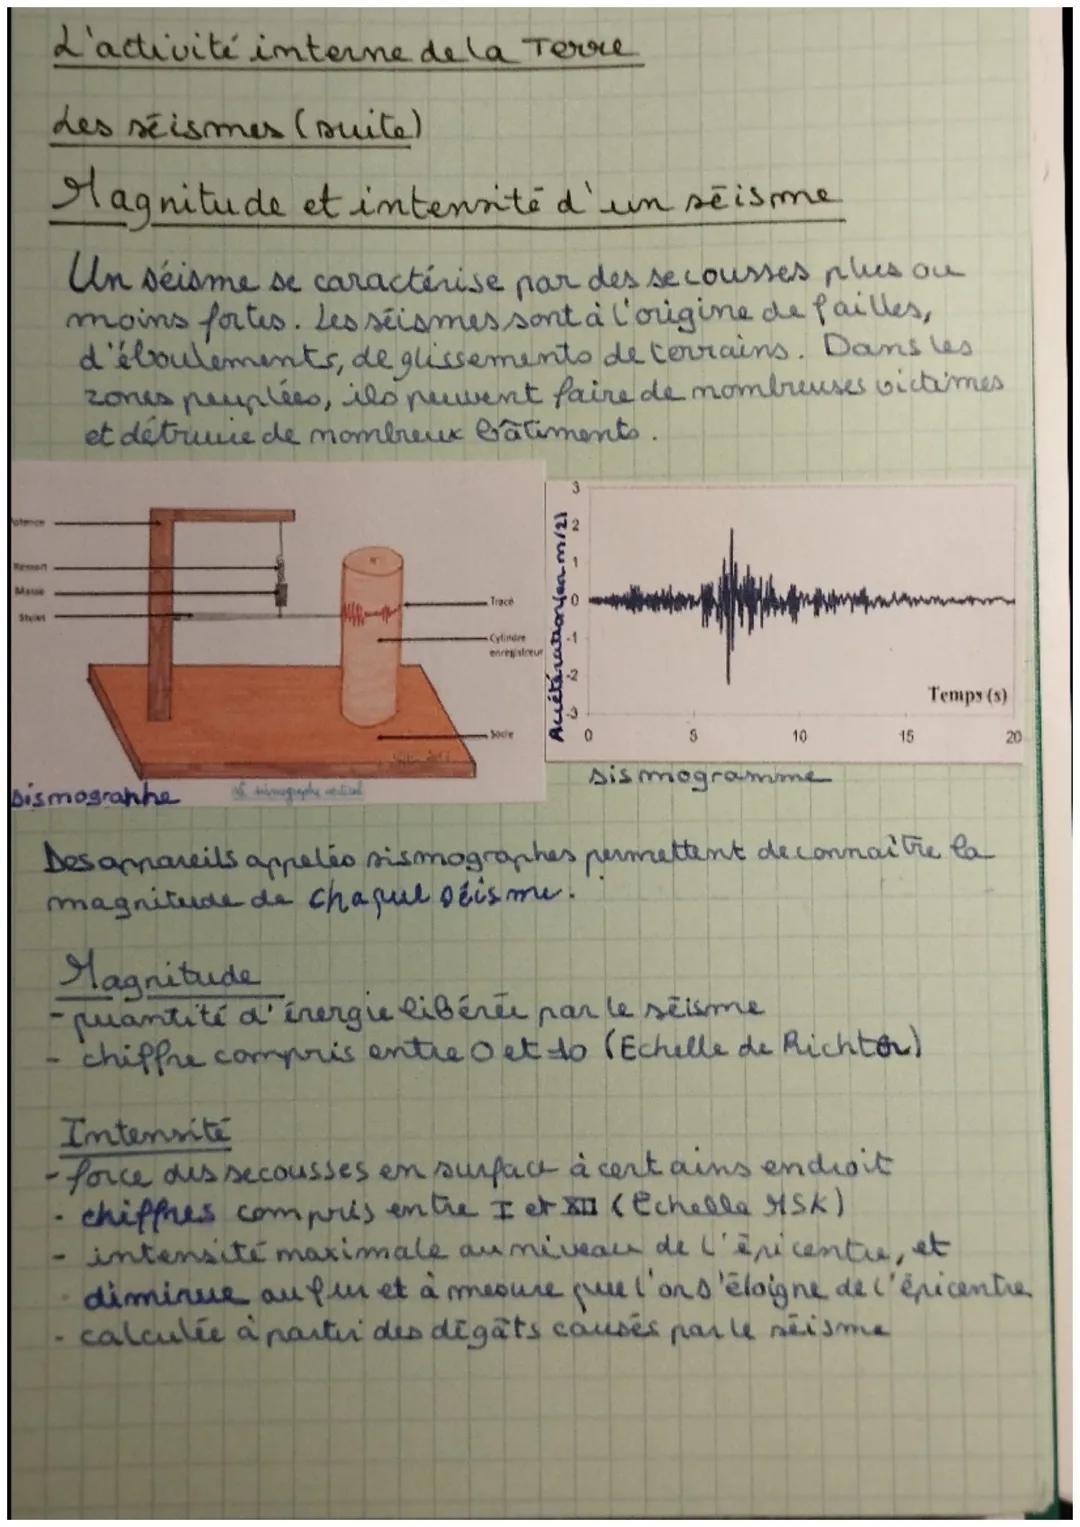 L'activité interne de la Terre
Les séismes (suite)
Magnitude et intensité d'un séisme
Un séisme se caractérise par des secousses plus ou
moins fortes. Les séismes sont à l'origine de failles,
d'éboulements, de glissements de terrains. Dans les
zones peuplées, ils peuvent faire de nombreuses victimes
et détruire de nombreux bâtiments.
Potence
Ressort
Masse
Stylet
Tracé
Cylindre
enregistreur
Socle
sismographe vertical
Sismographe
Accélération (en m/2)
3
2
1
0
-1
-2
-3
0 5 10 15 20
Temps (s)
sismogramme
Des appareils appelés sismographes permettent de connaître la
magnitude de chaque séisme.
Magnitude
- quantité d'énergie libérée par le séisme
- chiffre compris entre 0 et 10 (Echelle de Richter)
Intensité
- force des secousses en surface à certains endroit
- chiffres compris entre I et XII (Echelle MSK)
- intensité maximale au niveau de l'épicentre, et
diminue au fur et à mesure que l'on s'éloigne de l'épicentre
- calculée à partir des dégâts causés par le séisme